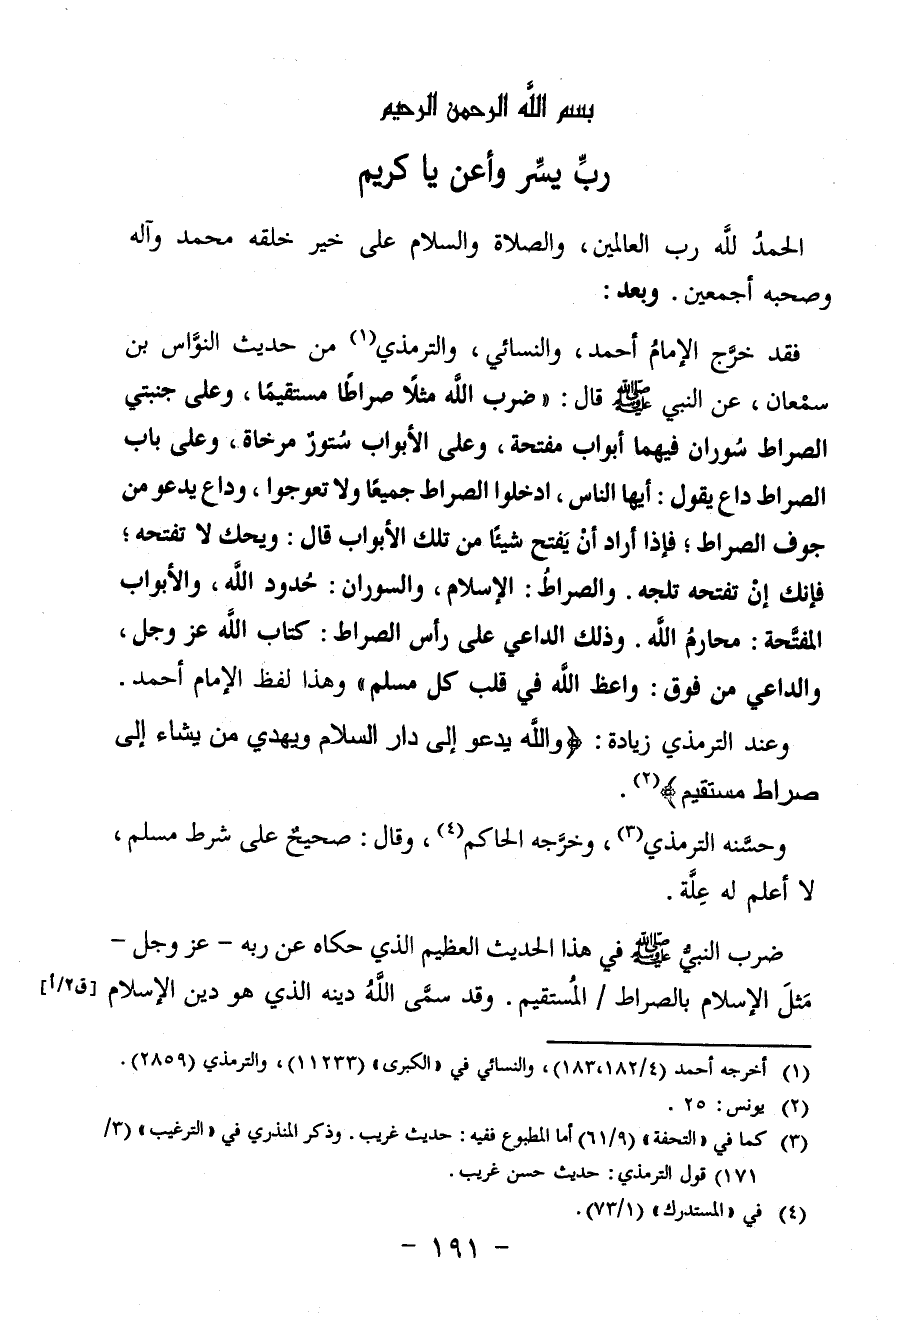 بسم اللَّه الرحمن الرحيم
ربِّ يسِّر وأعن يا كريم
الحمدُ للَّه رب العالمين، والصلاة والسلام على خير خلقه محمد وآله
وصحبه أجمعين. وبعد:
فقد خرَّج الإمامُ أحمد، والنسائي، والترمذي(١) من حديث النوَّاس بن
سمْعان، عن النبي ﷺ قال: «ضرب اللَّه مثلًا صراطًا مستقيمًا، وعلى جنبتي
الصراط سُوران فيهما أبواب مفتحة، وعلى الأبواب سُتورٌ مرخاة، وعلى باب
الصراط داع يقول: أيها الناس، ادخلوا الصراط جميعًا ولا تعوجوا، وداع يدعو من
جوف الصراط؛ فإذا أراد أنْ يَفتح شيئًا من تلك الأبواب قال: ويحك لا تفتحه؛
فإنك إنْ تفتحه تلجه. والصراطُ: الإسلام، والسوران: حُدود اللَّه، والأبواب
المفتَّحة: محارمُ اللَّه. وذلك الداعي على رأس الصراط: كتاب اللَّه عز وجل،
والداعي من فوق: واعظ اللَّه في قلب كل مسلم» وهذا لفظ الإمام أحمد.
وعند الترمذي زيادة: ﴿واللَّه يدعو إلى دار السلام ويهدي من يشاء إلى
صراط مستقيم﴾(٢).
وحسَّنه الترمذي(٣)، وخرَّجه الحاكم(٤)، وقال: صحيحٌ على شرط مسلم،
لا أعلم له عِلَّة.
ضرب النبيُّ ﷺ في هذا الحديث العظيم الذي حكاه عن ربه - عز وجل -
مَثلَ الإسلام بالصراط / المُستقيم. وقد سمَّى اللَّهُ دينه الذي هو دين الإسلام [ق٢/أ]
(١) أخرجه أحمد (٤/١٨٢، ١٨٣)، والنسائي في «الكبرى» (١١٢٣٣)، والترمذي (٢٨٥٩).
(٢) يونس: ٢٥.
(٣) كما في «التحفة» (٩/٦١) أما المطبوع ففيه: حديث غريب. وذكر المنذري في «الترغيب» (٣/
١٧١) قول الترمذي: حديث حسن غريب.
(٤) في «المستدرك» (١/٧٣).
- ١٩١ -